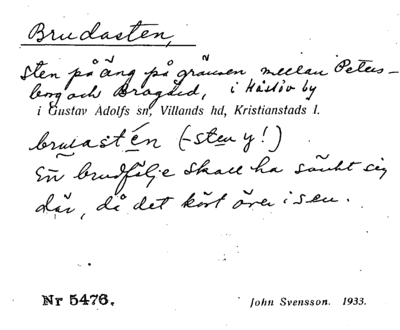 Brudasten,
Sten på äng på gränsen mellan Peters-
borg och Bragård, i Håslöv by
i Gustav Adolfs sn, Villands hd, Kristianstads l.
brudastén (-sten y!)
En brudfölje skall ha sänkt sig
där, då det kört över isen.
Nr 5476.
John Svensson. 1933.